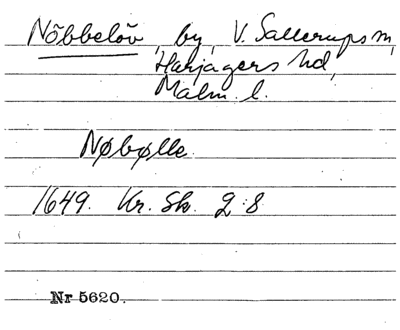 Nöbbelöv, by, V. Sallerups sn,
Harjagers hd,
Malm. l.
Nøbølle
1649. Kr. Sk. 2:8
Nr 5620.